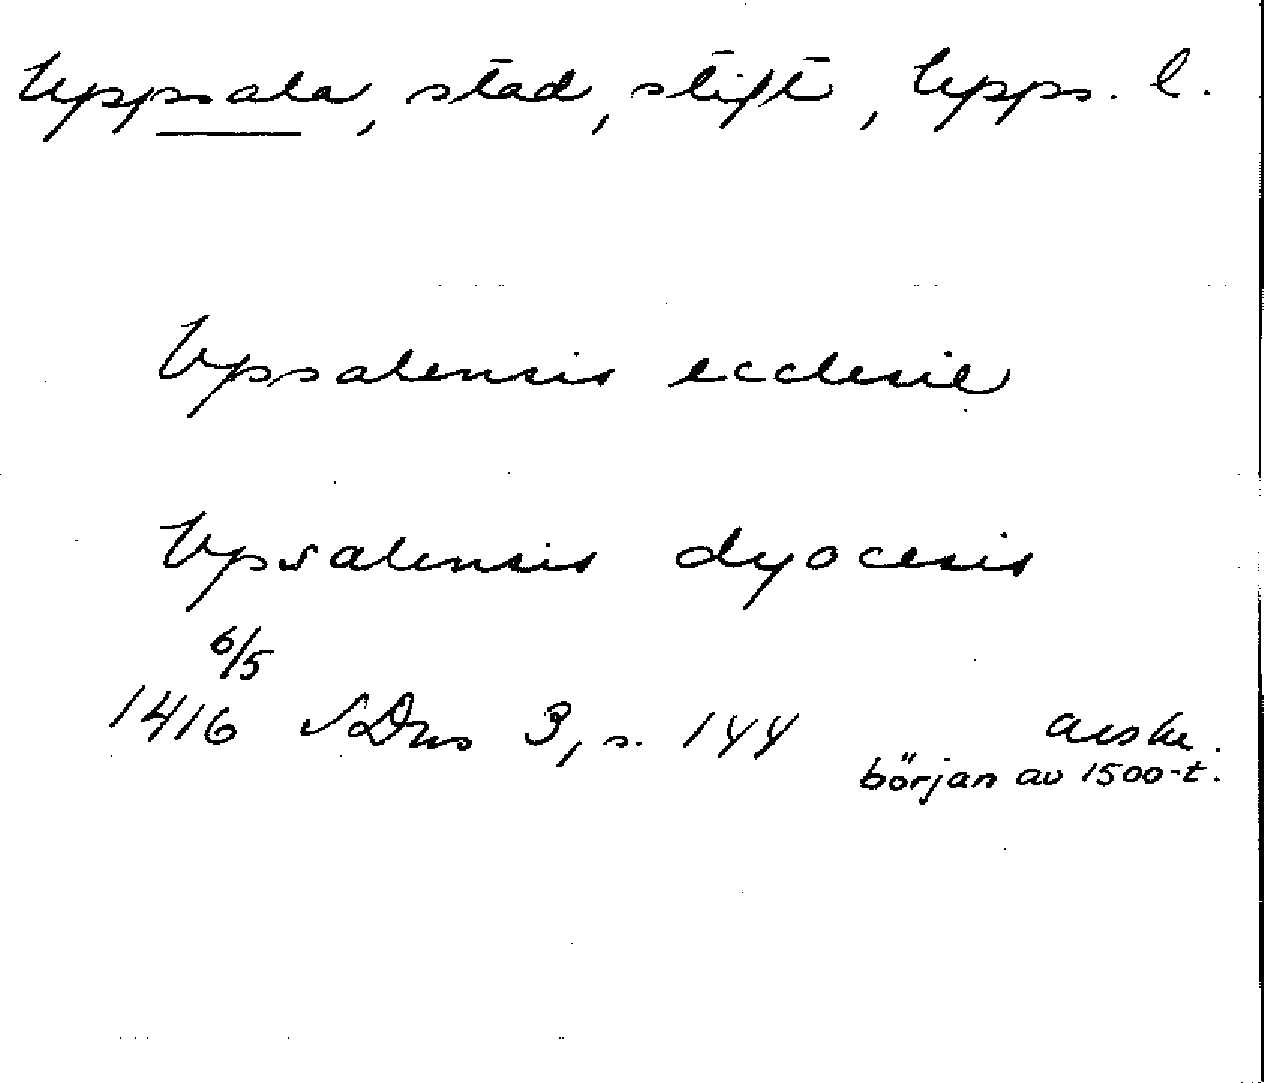 Uppsala, stad, stift, Upps. l.
Vpsalensis ecclesie
Vpsalensis dyocesis
6/5
1416 SDns 3, s. 144 avskr.
början av 1500-t.